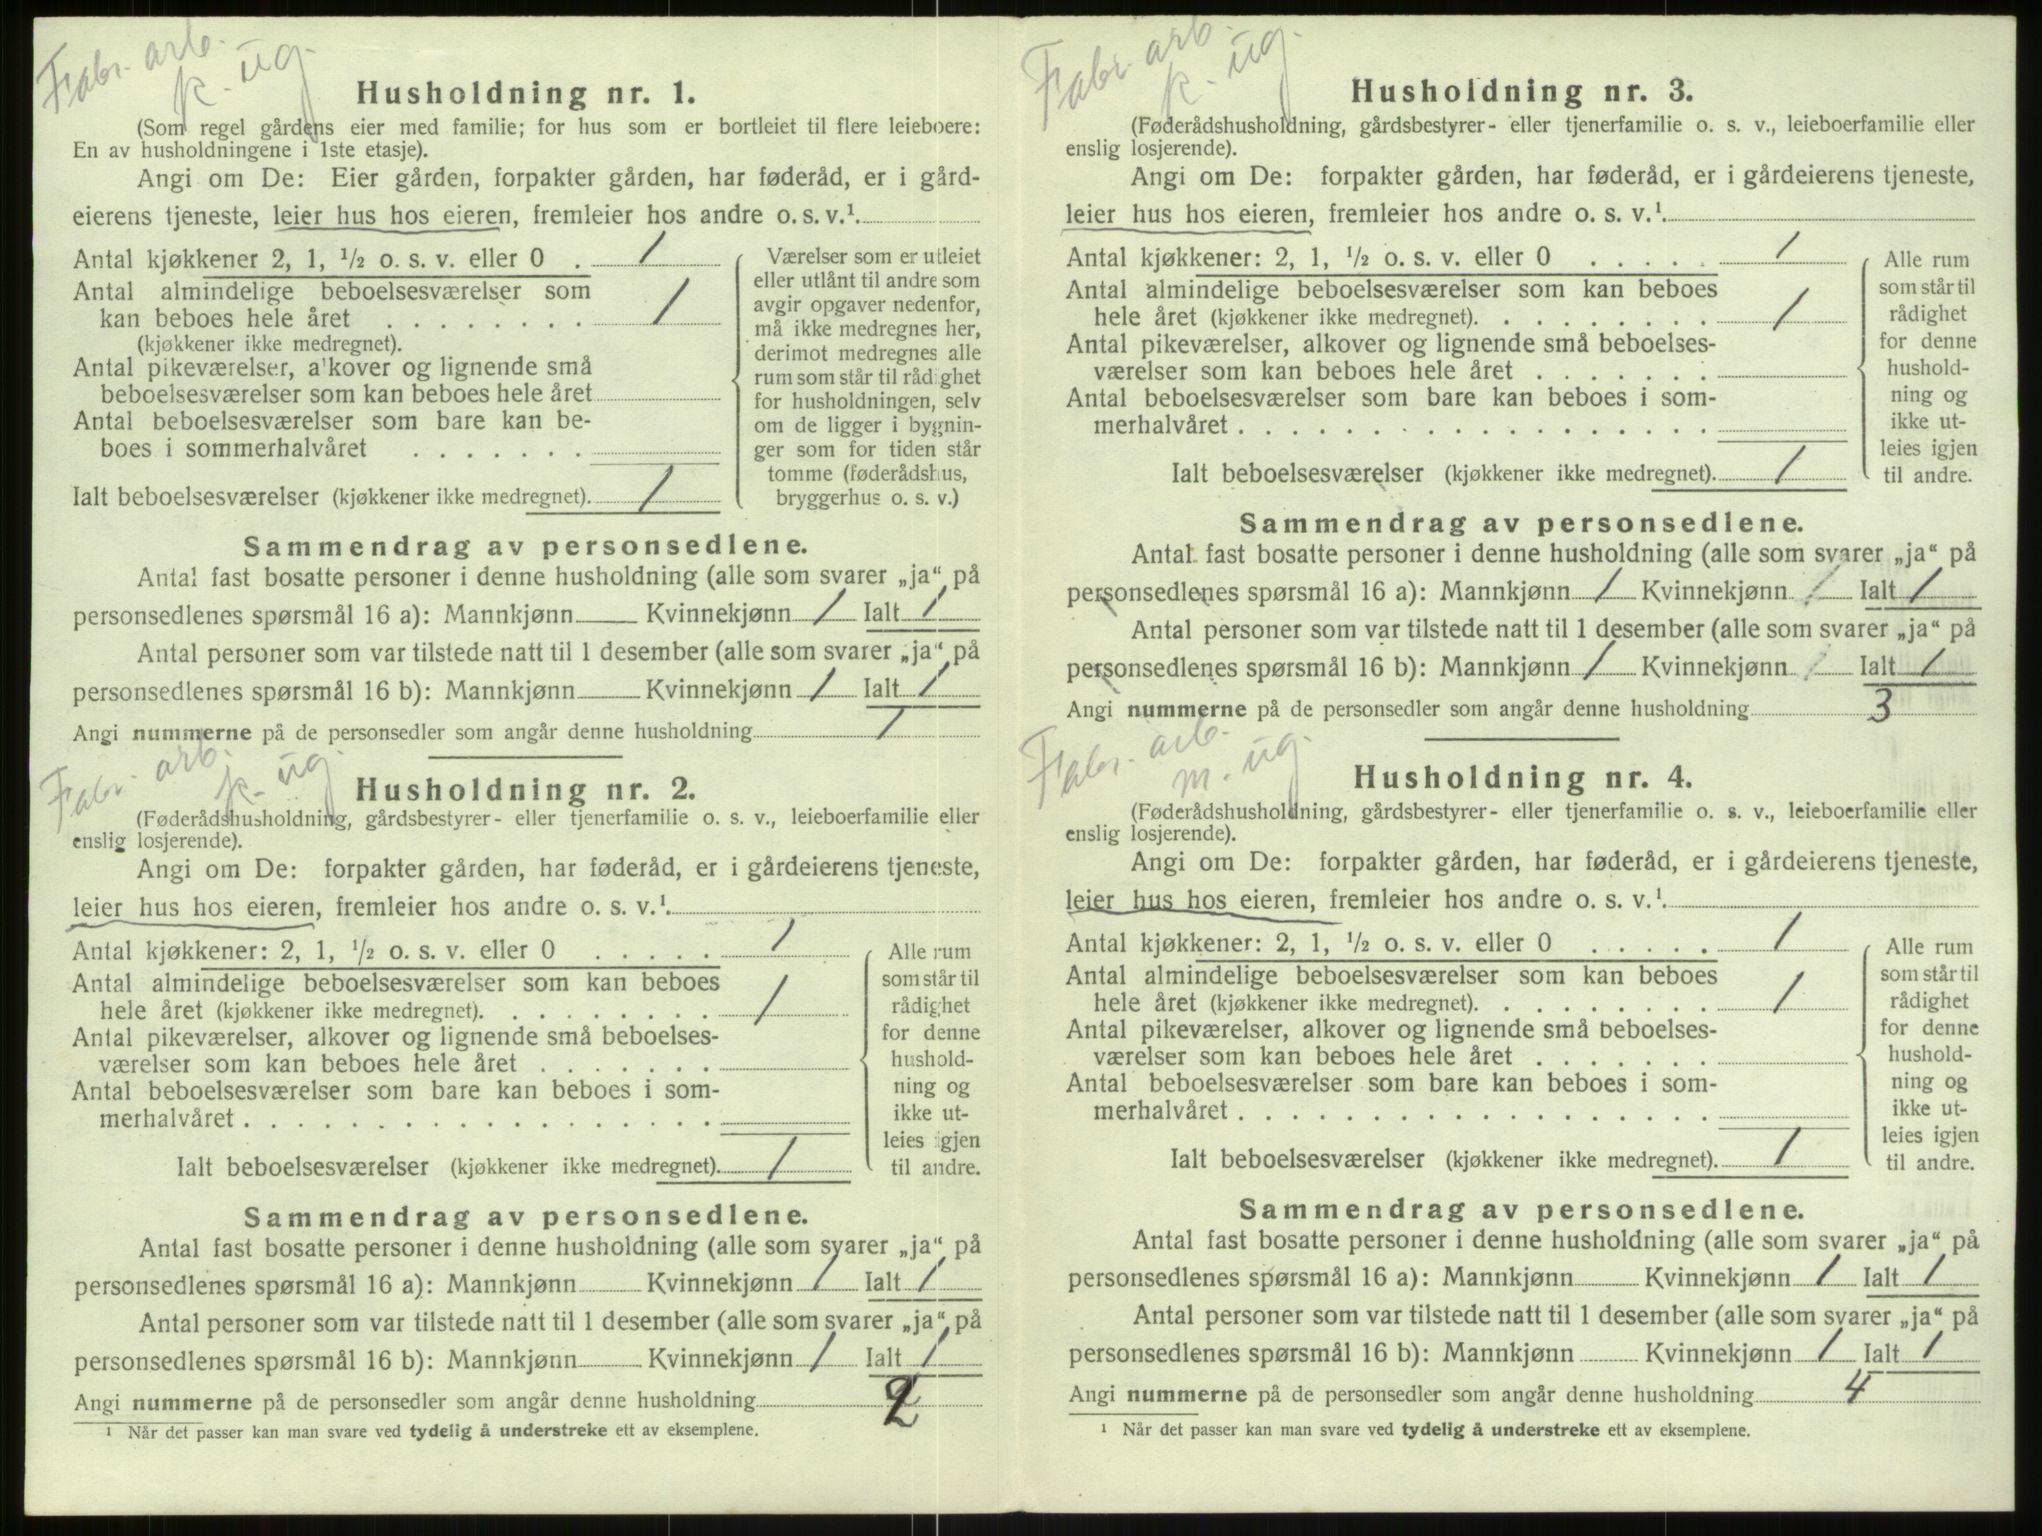 Fabr. arb.
k. ug.
Husholdning nr. 1.
(Som regel gårdens eier med familie; for hus som er bortleiet til flere leieboere:
En av husholdningene i 1ste etasje).
Angi om De: Eier gården, forpakter gården, har føderåd, er i gård-
eierens tjeneste, leier hus hos eieren, fremleier hos andre o. s. v.¹
Antal kjøkkener 2, 1, ½ o. s. v. eller 0 . 1
Antal almindelige beboelsesværelser som
kan beboes hele året . . . . . . . . 1
(kjøkkener ikke medregnet).
Antal pikeværelser, alkover og lignende små
beboelsesværelser som kan beboes hele året
Antal beboelsesværelser som bare kan be-
boes i sommerhalvåret . . . . . . .
Ialt beboelsesværelser (kjøkkener ikke medregnet). 1
Værelser som er utleiet
eller utlånt til andre som
avgir opgaver nedenfor,
må ikke medregnes her,
derimot medregnes alle
rum som står til rådighet
for husholdningen, selv
om de ligger i bygnin-
ger som for tiden står
tomme (føderådshus,
bryggerhus o. s. v.)
Sammendrag av personsedlene.
Antal fast bosatte personer i denne husholdning (alle som svarer „ja“ på
personsedlenes spørsmål 16 a): Mannkjønn Kvinnekjønn 1 Ialt 1
Antal personer som var tilstede natt til 1 desember (alle som svarer „ja“ på
personsedlenes spørsmål 16 b): Mannkjønn Kvinnekjønn 1 Ialt 1
Angi nummerne på de personsedler som angår denne husholdning 1
Fabr. arb.
k. ug.
Husholdning nr. 2.
(Føderådshusholdning, gårdsbestyrer- eller tjenerfamilie o. s. v., leieboerfamilie eller
enslig losjerende).
Angi om De: forpakter gården, har føderåd, er i gårdeierens tjeneste,
leier hus hos eieren, fremleier hos andre o. s. v.¹
Antal kjøkkener: 2, 1, ½ o. s. v. eller 0 . . . . . 1
Antal almindelige beboelsesværelser som kan beboes
hele året (kjøkkener ikke medregnet). . . . . . . . . 1
Antal pikeværelser, alkover og lignende små beboelses-
værelser som kan beboes hele året . . . . . . .
Antal beboelsesværelser som bare kan beboes i som-
merhalvåret . . . . . . . . . . . . . . . . . .
Ialt beboelsesværelser (kjøkkener ikke medregnet). 1
Alle rum
som står til
rådighet
for denne
hushold-
ning og
ikke ut-
leies igjen
til andre.
Sammendrag av personsedlene.
Antal fast bosatte personer i denne husholdning (alle som svarer „ja“ på
personsedlenes spørsmål 16 a): Mannkjønn Kvinnekjønn 1 Ialt 1
Antal personer som var tilstede natt til 1 desember (alle som svarer „ja“ på
personsedlenes spørsmål 16 b): Mannkjønn Kvinnekjønn 1 Ialt 1
Angi nummerne på de personsedler som angår denne husholdning 2
¹ Når det passer kan man svare ved tydelig å understreke ett av eksemplene.
Fabr. arb.
k. ug.
Husholdning nr. 3.
(Føderådshusholdning, gårdsbestyrer- eller tjenerfamilie o. s. v., leieboerfamilie eller
enslig losjerende).
Angi om De: forpakter gården, har føderåd, er i gårdeierens tjeneste,
leier hus hos eieren, fremleier hos andre o. s. v.¹
Antal kjøkkener: 2, 1, ½ o. s. v. eller 0 . . . . . 1
Antal almindelige beboelsesværelser som kan beboes
hele året (kjøkkener ikke medregnet). . . . . . . . . 1
Antal pikeværelser, alkover og lignende små beboelses-
værelser som kan beboes hele året . . . . . . .
Antal beboelsesværelser som bare kan beboes i som-
merhalvåret . . . . . . . . . . . . . . . . . .
Ialt beboelsesværelser (kjøkkener ikke medregnet). 1
Alle rum
som står til
rådighet
for denne
hushold-
ning og
ikke ut-
leies igjen
til andre.
Sammendrag av personsedlene.
Antal fast bosatte personer i denne husholdning (alle som svarer „ja“ på
personsedlenes spørsmål 16 a): Mannkjønn 1 Kvinnekjønn Ialt 1
Antal personer som var tilstede natt til 1 desember (alle som svarer „ja“ på
personsedlenes spørsmål 16 b): Mannkjønn 1 Kvinnekjønn Ialt 1
Angi nummerne på de personsedler som angår denne husholdning 3
Fabr. arb.
m. ug.
Husholdning nr. 4.
(Føderådshusholdning, gårdsbestyrer- eller tjenerfamilie o. s. v., leieboerfamilie eller
enslig losjerende).
Angi om De: forpakter gården, har føderåd, er i gårdeierens tjeneste,
leier hus hos eieren, fremleier hos andre o. s. v.¹
Antal kjøkkener: 2, 1, ½ o. s. v. eller 0 . . . . . 1
Antal almindelige beboelsesværelser som kan beboes
hele året (kjøkkener ikke medregnet). . . . . . . . . 1
Antal pikeværelser, alkover og lignende små beboelses-
værelser som kan beboes hele året . . . . . . .
Antal beboelsesværelser som bare kan beboes i som-
merhalvåret . . . . . . . . . . . . . . . . . .
Ialt beboelsesværelser (kjøkkener ikke medregnet). 1
Alle rum
som står til
rådighet
for denne
hushold-
ning og
ikke ut-
leies igjen
til andre.
Sammendrag av personsedlene.
Antal fast bosatte personer i denne husholdning (alle som svarer „ja“ på
personsedlenes spørsmål 16 a): Mannkjønn Kvinnekjønn 1 Ialt 1
Antal personer som var tilstede natt til 1 desember (alle som svarer „ja“ på
personsedlenes spørsmål 16 b): Mannkjønn Kvinnekjønn 1 Ialt 1
Angi nummerne på de personsedler som angår denne husholdning 4
¹ Når det passer kan man svare ved tydelig å understreke ett av eksemplene.